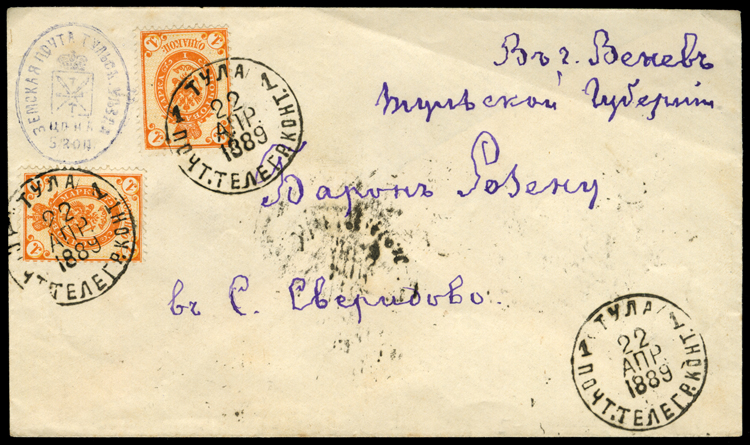 ЗЕМСКАЯ ПОЧТА ТУЛЬСК. УѢЗДА
ЦѢНА
5 КОП
ТУЛА
1 1
22
АПР.
1889
ПОЧТ. ТЕЛЕГР. КОНТ.
Въ г. Веневъ
Тульской Губерніи
Барону Розену
въ С. Свиридово.
ТУЛА
1
22
АПР
1889
ПОЧТ. ТЕЛЕГР. КОНТ.
ТУЛА
1 1
22
АПР.
1889
ПОЧТ. ТЕЛЕГР. КОНТ.